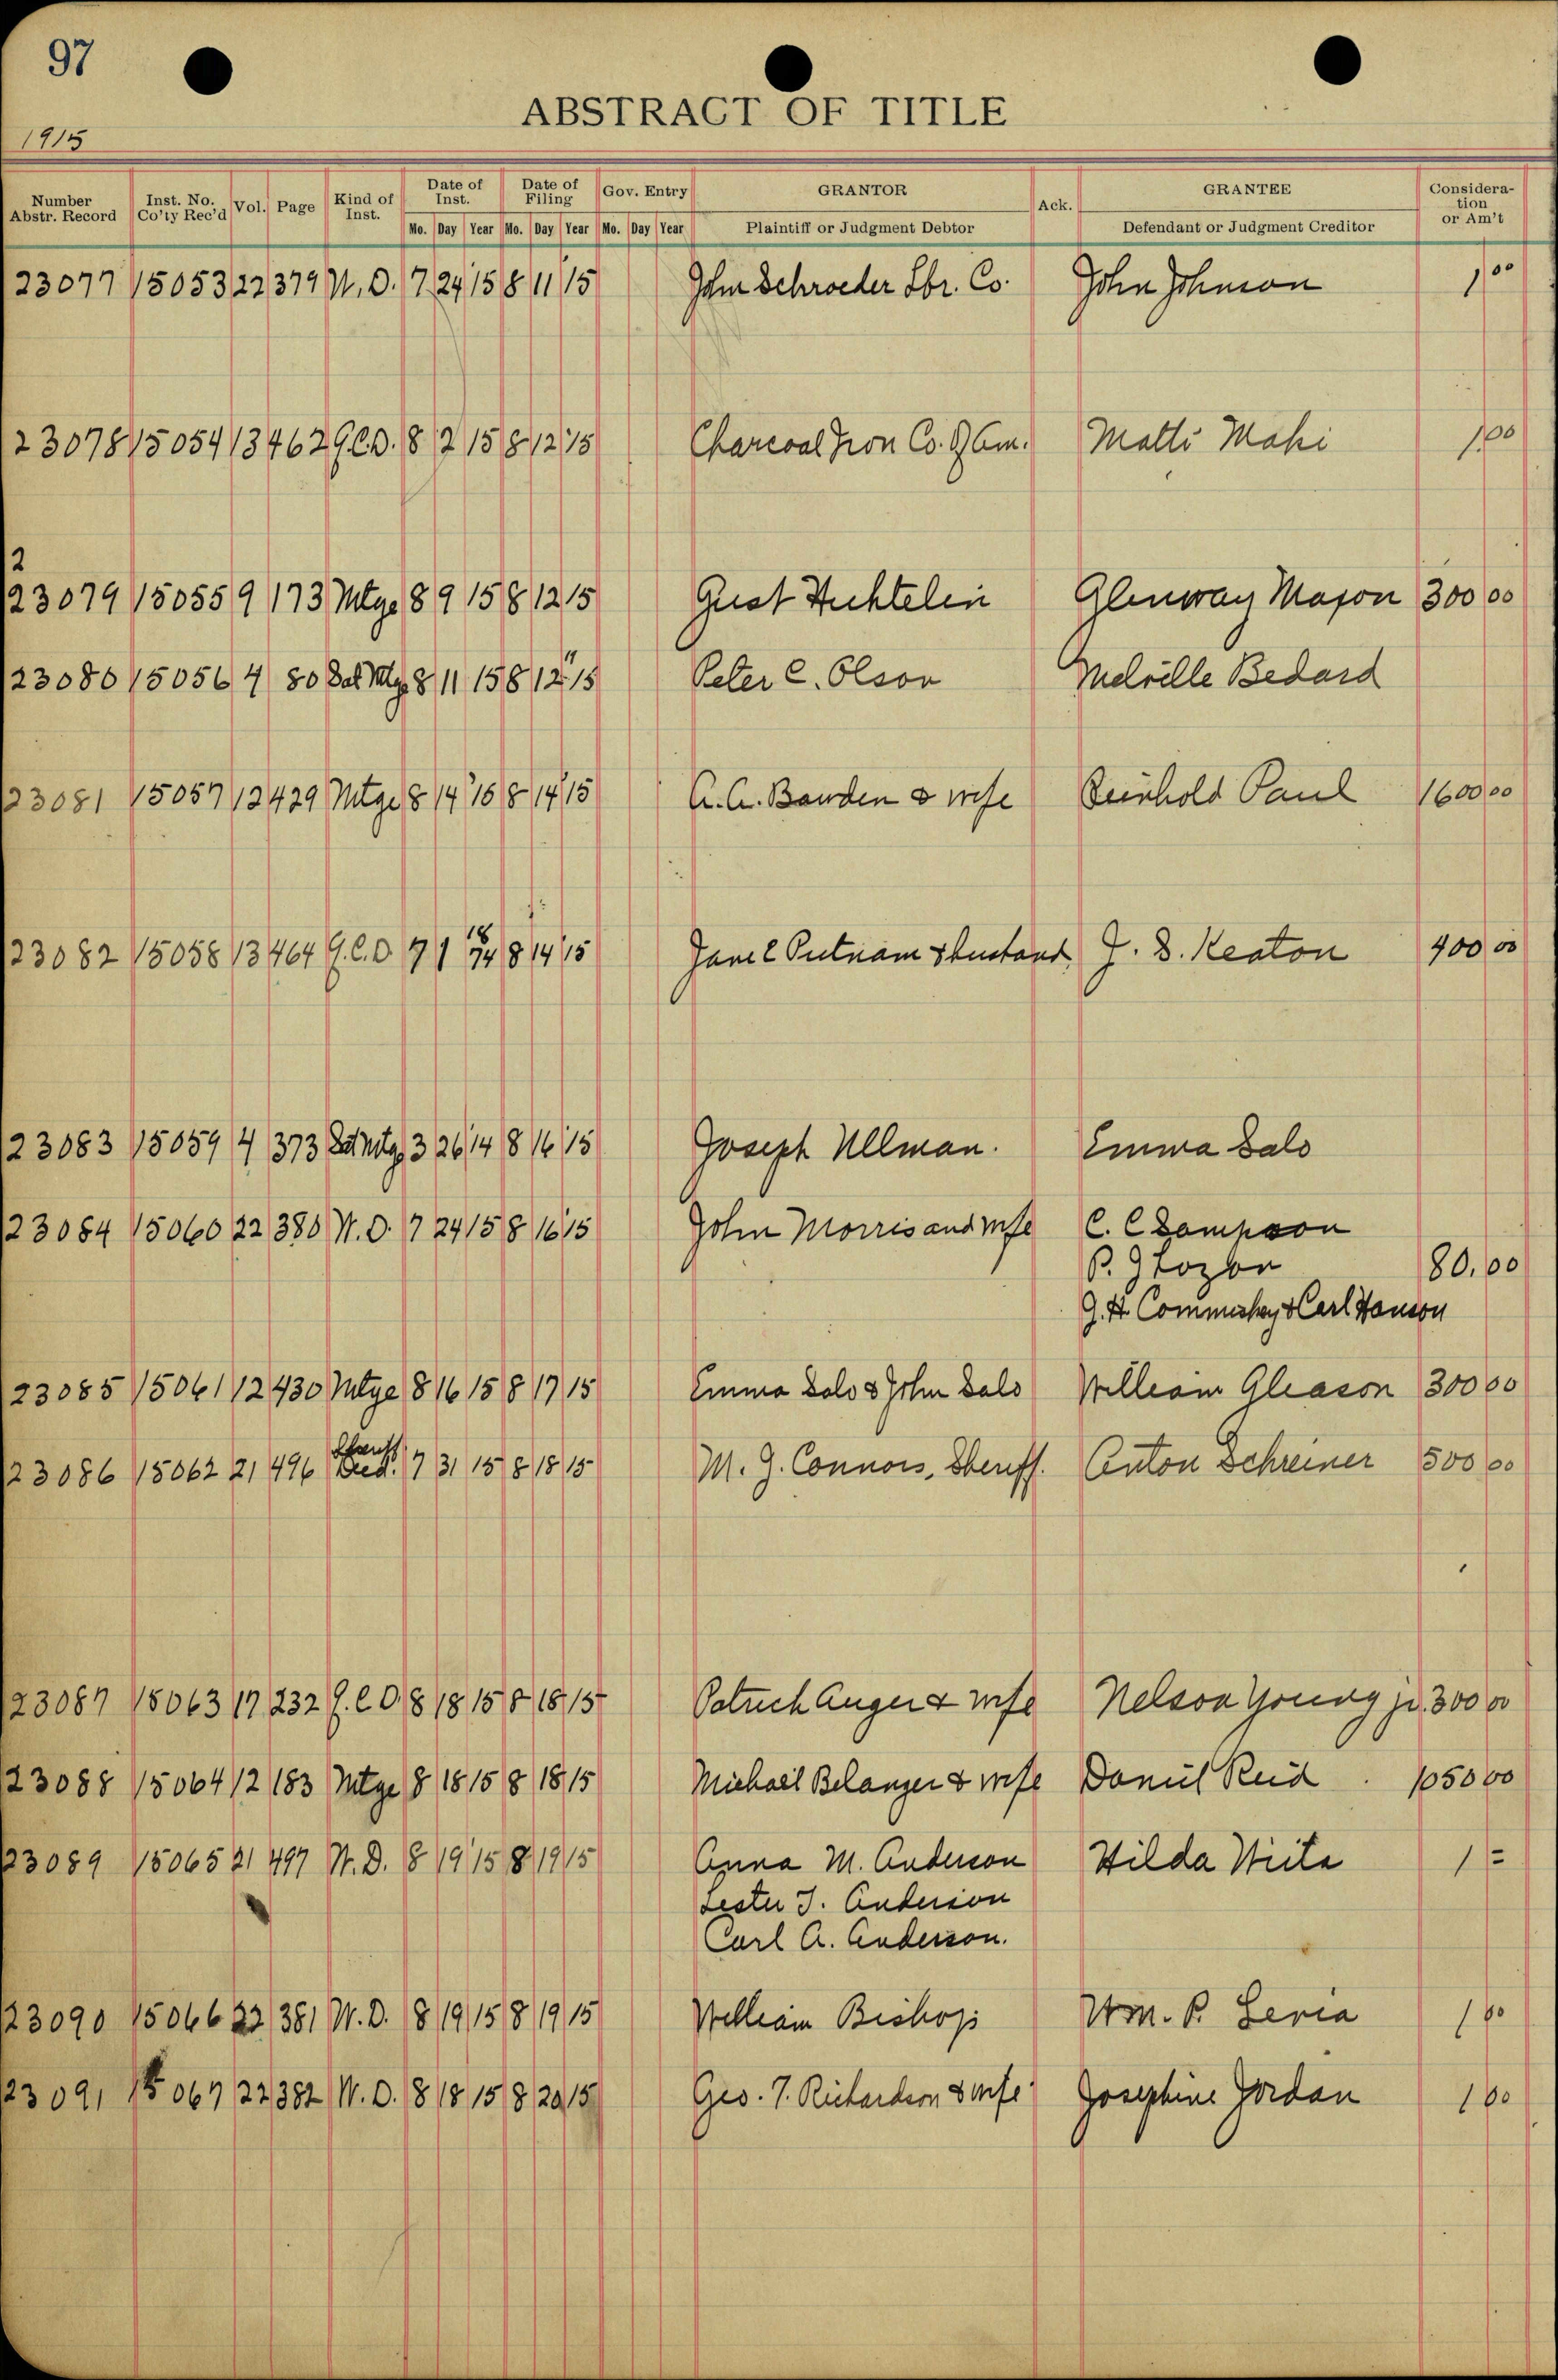 97
ABSTRACT OF TITLE
1915
Number Abstr. Record Inst. No. Co'ty Rec'd Vol. Page Kind of Inst. Date of Inst. Date of Filing Gov. Entry GRANTOR Ack. GRANTEE Consideration or Am't
Mo. Day Year Mo. Day Year Mo. Day Year Plaintiff or Judgment Debtor Defendant or Judgment Creditor
23077 15053 22 379 W.D. 7 24 15 8 11 15 John Schroeder Lbr. Co. John Johnson 1 00
23078 15054 13 462 Q.C.D. 8 2 15 8 12 15 Charcoal Iron Co. of Am. Matti Maki 1.00
2
23079 15055 9 173 Mtge 8 9 15 8 12 15 Gust Huhtelin Glenway Maxon 300 00
23080 15056 4 80 Sat Mtg. 8 11 15 8 12 15 Peter C. Olson Melville Bedard
23081 15057 12 429 Mtge 8 14 15 8 14 15 A. A. Bawden & wife Reinhold Paul 1600 00
23082 15058 13 464 Q.C.D 7 1 8 14 15 Jane E Putnam & husband J. D. Keaton 400 00
23083 15059 4 373 Sat Mtg. 3 26 14 8 16 15 Joseph Ullman. Emma Salo
23084 15060 22 380 W.D. 7 24 15 8 16 15 John Morris and wife C. C Sampson
P. G 80.00
G. H. & Carl Hanson
23085 15061 12 430 Mtge 8 16 15 8 17 15 Emma Salo & John Salo William Gleason 300 00
23086 15062 21 496 Sheriff Deed. 7 31 15 8 18 15 M. J. Connors, Sheriff. Anton Schreiner 500 00
23087 15063 17 232 Q.C.D. 8 18 15 8 18 15 Patrick Auger & wife Nelson Young jr. 300 00
23088 15064 12 183 Mtge 8 18 15 8 18 15 Michael Belanger & wife Daniel Reid 1050 00
23089 15065 21 497 W.D. 8 19 15 8 19 15 Anna M. Anderson Hilda Wiita 1 =
Lester J. Anderson
Carl A. Anderson.
23090 15066 22 381 W.D. 8 19 15 8 19 15 William Bishop Wm. P. Leria 1 00
23091 15067 22 382 W.D. 8 18 15 8 20 15 Geo. T. Richardson & wife Josephine Jordan 1 00